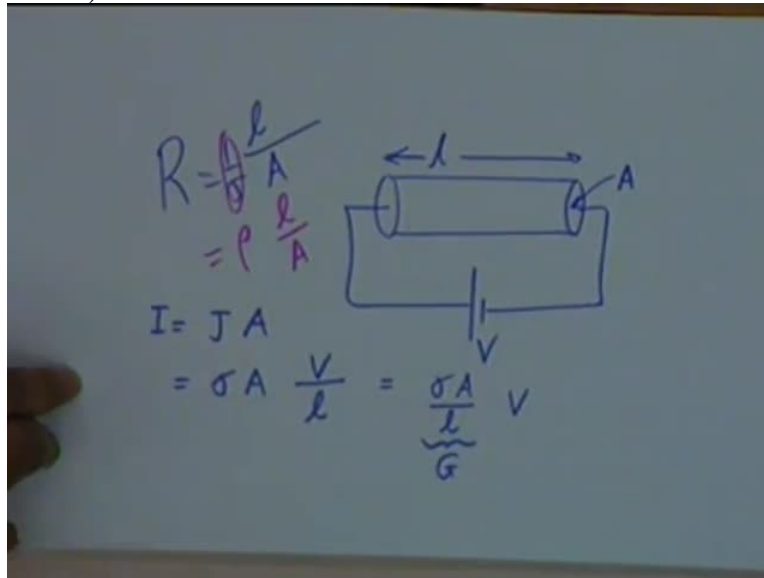 R = 1/σ l/A
= ρ l/A
l
A
V
I = J A
= σ A V/l = σA/l V
G